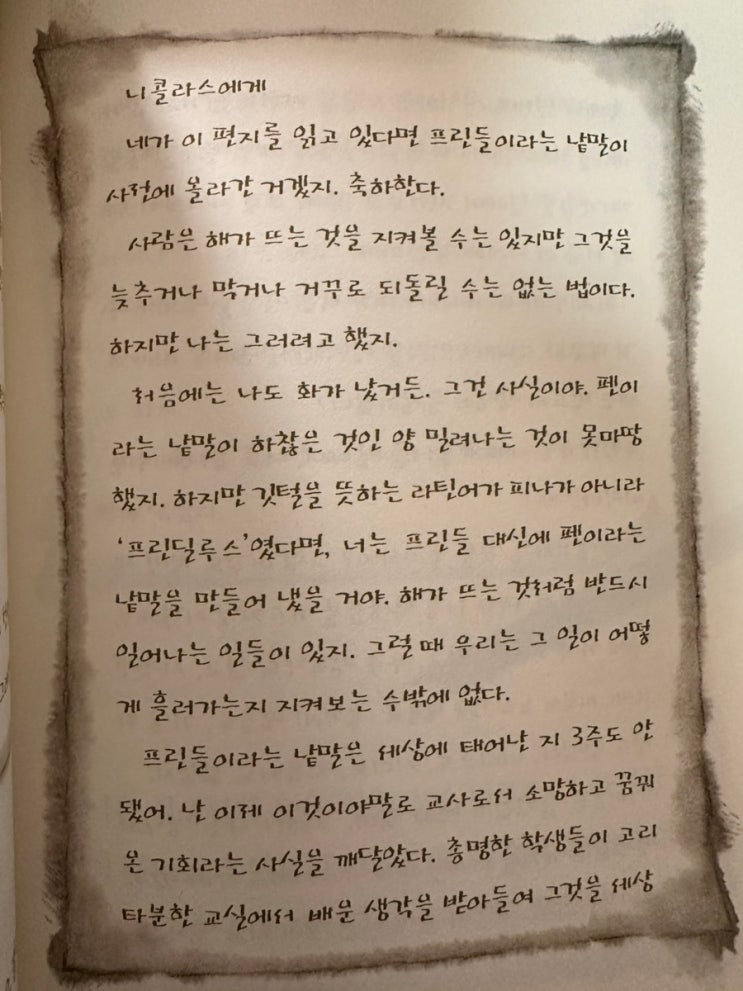 니콜라스에게
네가 이 편지를 읽고 있다면 프린들이라는 낱말이
사전에 올라간 거겠지. 축하한다.
사람은 해가 뜨는 것을 지켜볼 수는 있지만 그것을
늦추거나 막거나 거꾸로 되돌릴 수는 없는 법이다.
하지만 나는 그러려고 했지.
처음에는 나도 화가 났거든. 그건 사실이야. 펜이
라는 낱말이 하찮은 것인 양 밀려나는 것이 못마땅
했지. 하지만 깃털을 뜻하는 라틴어가 피나가 아니라
‘프린딜루스’였다면, 너는 프린들 대신에 펜이라는
낱말을 만들어 냈을 거야. 해가 뜨는 것처럼 반드시
일어나는 일들이 있지. 그럴 때 우리는 그 일이 어떻
게 흘러가는지 지켜보는 수밖에 없다.
프린들이라는 낱말은 세상에 태어난 지 3주도 안
됐어. 난 이제 이것이야말로 교사로서 소망하고 꿈꿔
온 기회라는 사실을 깨달았다. 총명한 학생들이 고리
타분한 교실에서 배운 생각을 받아들여 그것을 세상